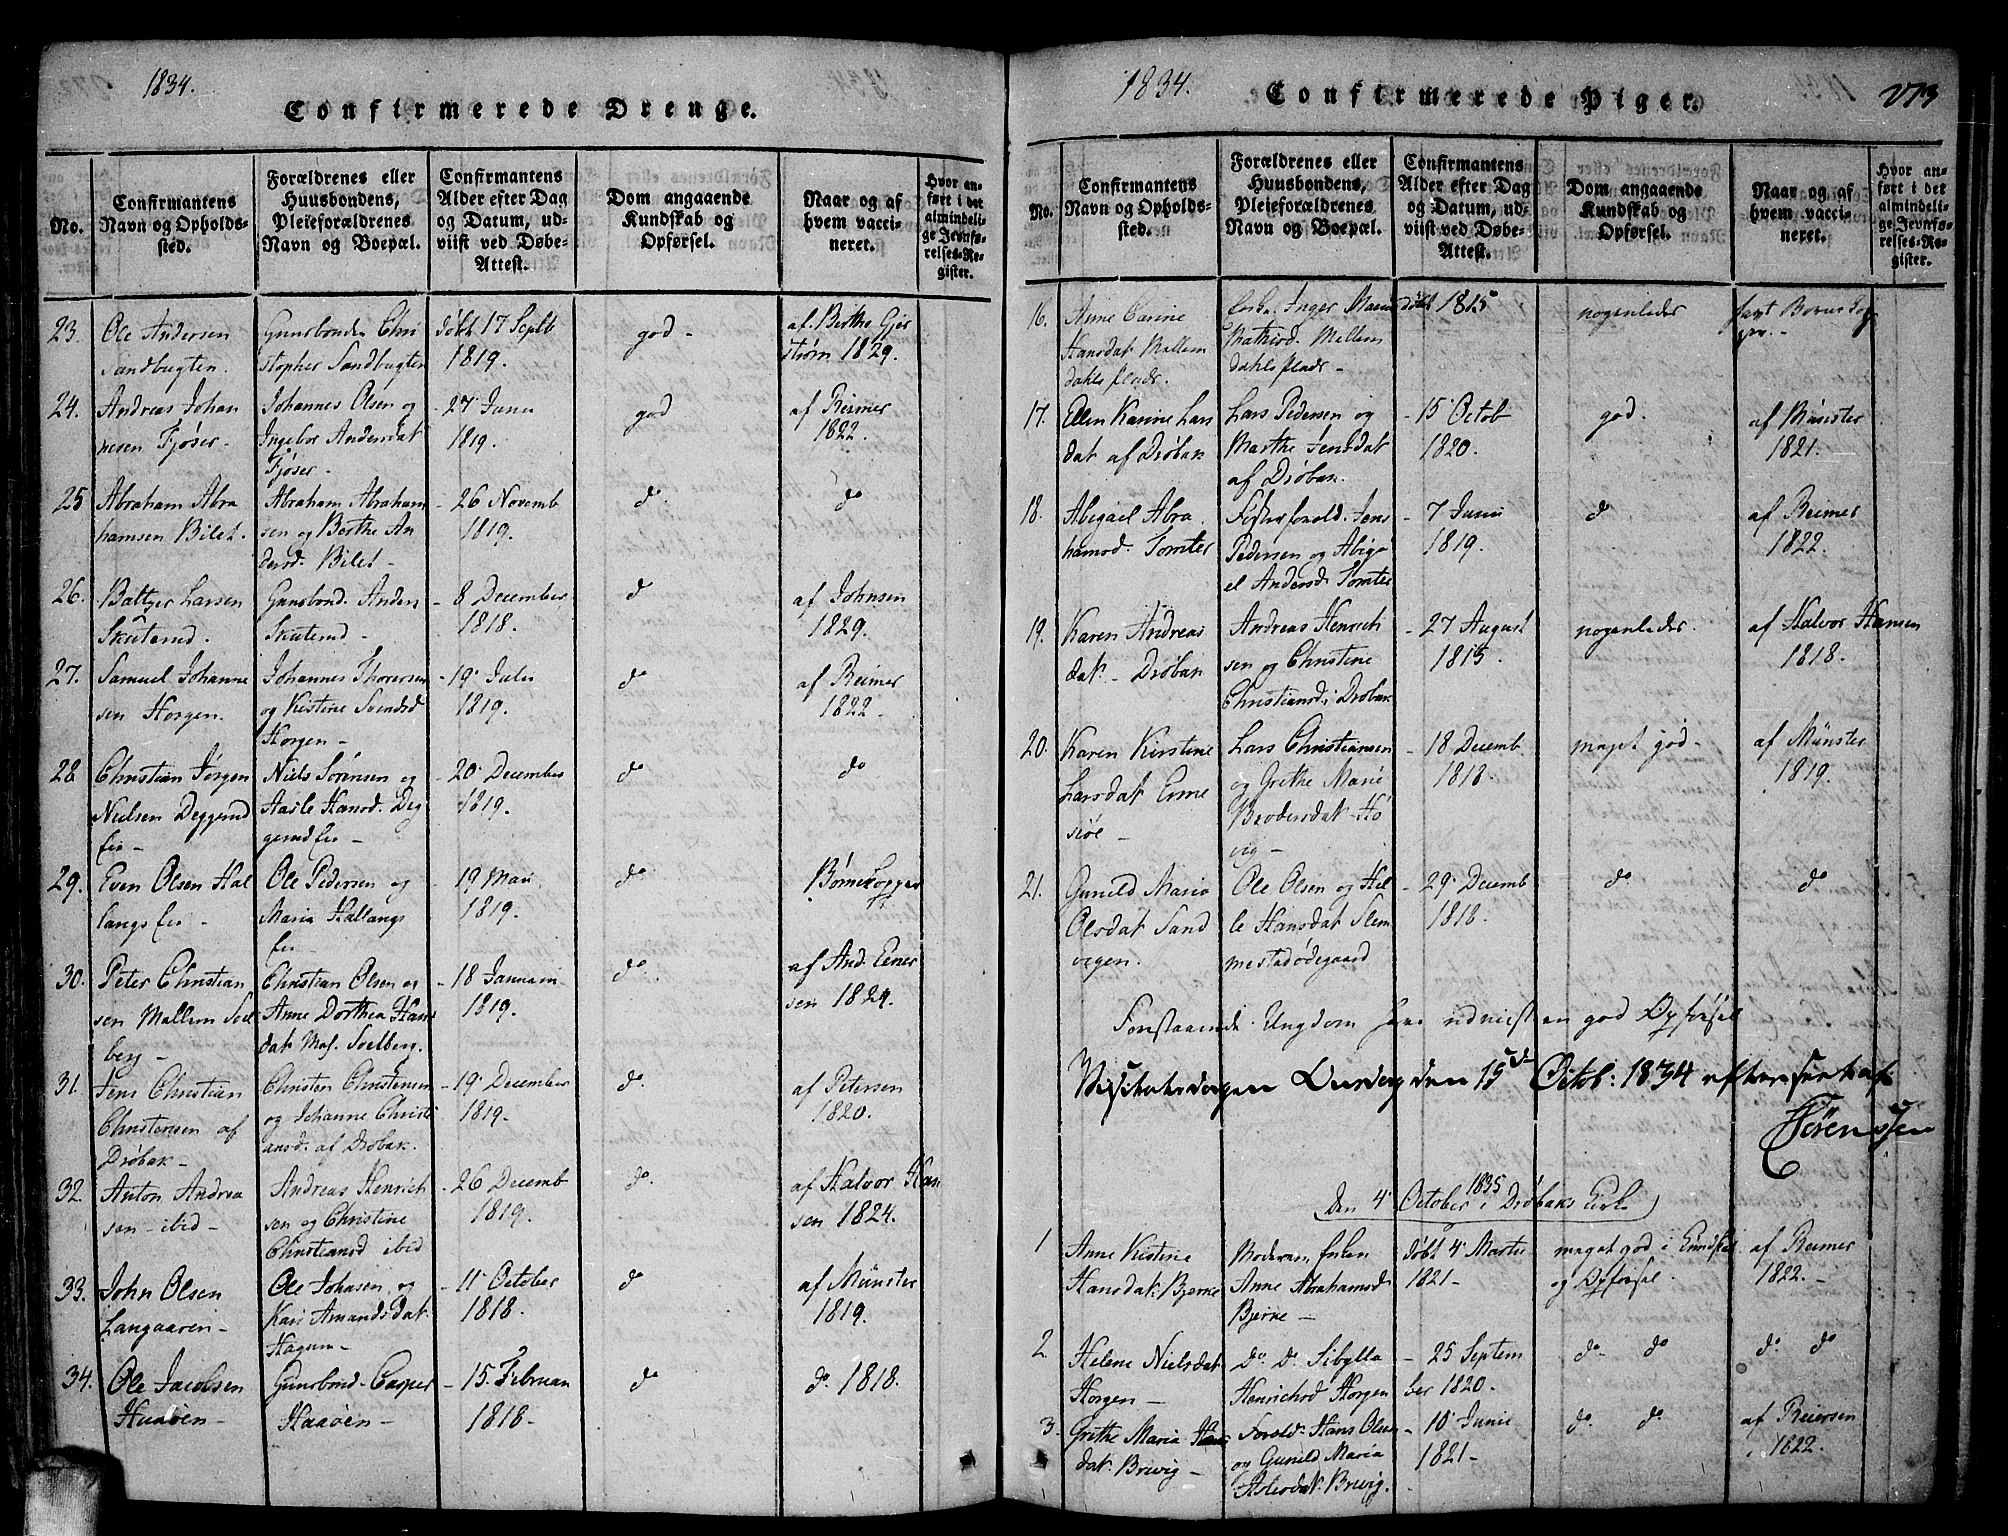 1834.
Confirmerede Drenge.
No.
Confirmantens
Navn og Opholds-
sted.
Forældrenes eller
Huusbondens,
Pleieforældrenes
Navn og Boepæl.
Confirmantens
Alder efter Dag
og Datum, ud-
viist ved Døbe-
Attest.
Dom angaaende
Kundskab og
Opførsel.
Naar og af
hvem vacci-
neret.
Hvor an-
ført i det
almindeli-
ge Jevnfø-
relses-Re-
gister.
23. Ole Andersen
Sandbugten.
Huusbonden Chri
stopher Sandbugten
døbt 17 Septb
1819.
god -
af Berthe Gjer
strøm 1829.
24. Andreas Johan
nesen Fjøser.
Johannes Olsen og
Ingebor Andersdat
Fjøser -
- 27 Junii
1819.
god
af Reimer
1822.
25 Abraham Abra
hamsen Bilet.
Abraham Abraham
sen og Berthe An
dersd. Bilet -
- 26 Novemb
1819.
do
do
26. Baltzer Larsen
Skuterud.
Huusbond. Anders
Skuterud -
- 8 December
1818.
do
af Johnsen
1829.
27. Samuel Johanne
sen Horgen.
Johannes Thoresen
og Kistine Svendsd
Horgen -
- 19 Julii
1819.
do
af Reimer
1822 -
28 Christian Jørgen
Nielsen Deggerud
eie -
Niels Sørensen og
Aasle Hansd. Deg
gerud eie -
- 20 December
1819.
do
do
29. Even Olsen Hal
langs eie -
Ole Pedersen og
Maria Hallangs
eie -
- 19 Mai
1819.
do
Børnekopper
30. Peter Christian
sen Mallem Soel
berg -
Christian Olsen og
Anne Dorthea Hans
dat Mal. Soelberg.
- 18 Januarii
1819.
do
af And. Ener
sen 1824.
31. Jens Christian
Christensen af
Drøbak -
Christen Christensen
og Johanne Christi
ansd. af Drøbak.
- 19 December
1819.
do
af Petersen
1820.
32. Anton Andrea
sen - ibid -
Andreas Henrich
sen og Christine
Christiansd ibid
- 26 Decemb
1819.
do.
af Halvor Han
sen 1824.
33. John Olsen
Langaaren -
Ole Johasen og
Kari Amundsdat.
Hagum -
- 11 October
1818.
do
af Münster
1819.
34. Ole Jacobsen
Haaøen -
Huusbond - Casper
Haaøen -
- 15. Februari
1818 -
do
do 1818.
1834.
Confirmerede Piger.
273
No.
Confirmantens
Navn og Opholds-
sted.
Forældrenes eller
Huusbondens,
Pleieforældrenes
Navn og Boepæl.
Confirmantens
Alder efter Dag
og Datum, ud-
viist ved Døbe-
Attest.
Dom angaaende
Kundskab og
Opførsel.
Naar og af
hvem vacci-
neret.
Hvor an-
ført i det
almindeli-
ge Jevnfø-
relses-Re-
gister.
16. Anne Carine
Hansdat Mellem
dahls plads.
Enke. Inger Marie
Mathisd. Mellem
dahls plads -
døbt 1815
nogenledes
17. Ellen Karine Lars
dat af Drøbak
Lars Pedersen og
Marthe Jensdat
af Drøbak.
- 15 Octob
1820.
god.
af Münster
1821.
18. Abigael Abra
hamsd. Tomter
Fosterforæld. Jens
Pedersen og Abiga
el Andersd. Tomter
- 7 Junii
1819.
do
af Reimer
1822.
19. Karen Andreas
dat. - Drøbak
Andreas Henrich
sen og Christine
Christiansd. i Drøbak
- 27 August
1815.
nogenledes.
af Halvor Hansen
1818.
20. Karen Kirstine
Larsdat Emme
stöe -
Lars Christiansen
og Grethe Marie
Brodersdat - Hö
vig -
- 18 Decemb
1818.
maget god -
af Münster
1819.
21. Gunild Maria
Olsdat Sand
vegen.
Ole Olsen og Hel
le Hansdat Slem
mestadødegaard
- 29 Decemb
1818.
do
do
Forestaaende Ungdom have udviist en god Opførsel
Visitatsdagen Onsdag den 15de Octob: 1834 efterseet af
Sörenssen
Den 4 October 1835 i Drøbaks Kirke
1 Anne Kistine
Hansdat. Bjerke
Moderen, Enken
Anne Abrahamsd
Bjerke -
døbt 4 Martii
1821 -
maget god i Kundskab
og Opførsel.
af Reimer
1822. -
2. Helene Nielsdat
Horgen -
do. do. Sibylla
Henrichsd Horgen
- 25 Septem
ber 1820.
do do
do do
3. Grethe Maria Hans
dat. Brevig -
Foræld. Hans Olsen
og Gunild Maria
Holersdat. Brevig.
- 10 Junii
1821 -
do do
af Reiersen
i 1822.